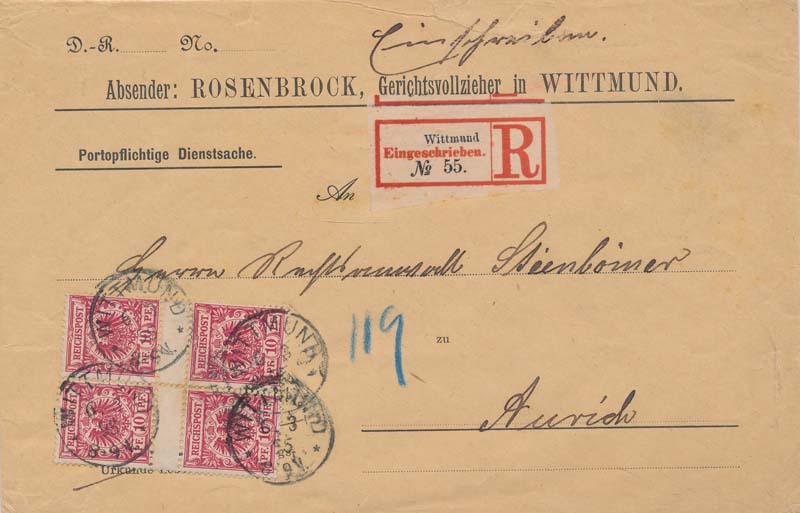 D.-R. No.
Einschreiben.
Absender: ROSENBROCK, Gerichtsvollzieher in WITTMUND.
Wittmund
Eingeschrieben.
№ 55.
R
Portopflichtige Dienstsache.
An
Herrn Rechtsanwalt Steinbömer
119
zu
Aurich
WITTMUND
REICHSPOST 10 PF
WITTMUND
REICHSPOST 10 PF
WITTMUND
8-9V.
REICHSPOST 10 PF
WITTMUND
REICHSPOST 10 PF
Urkunde